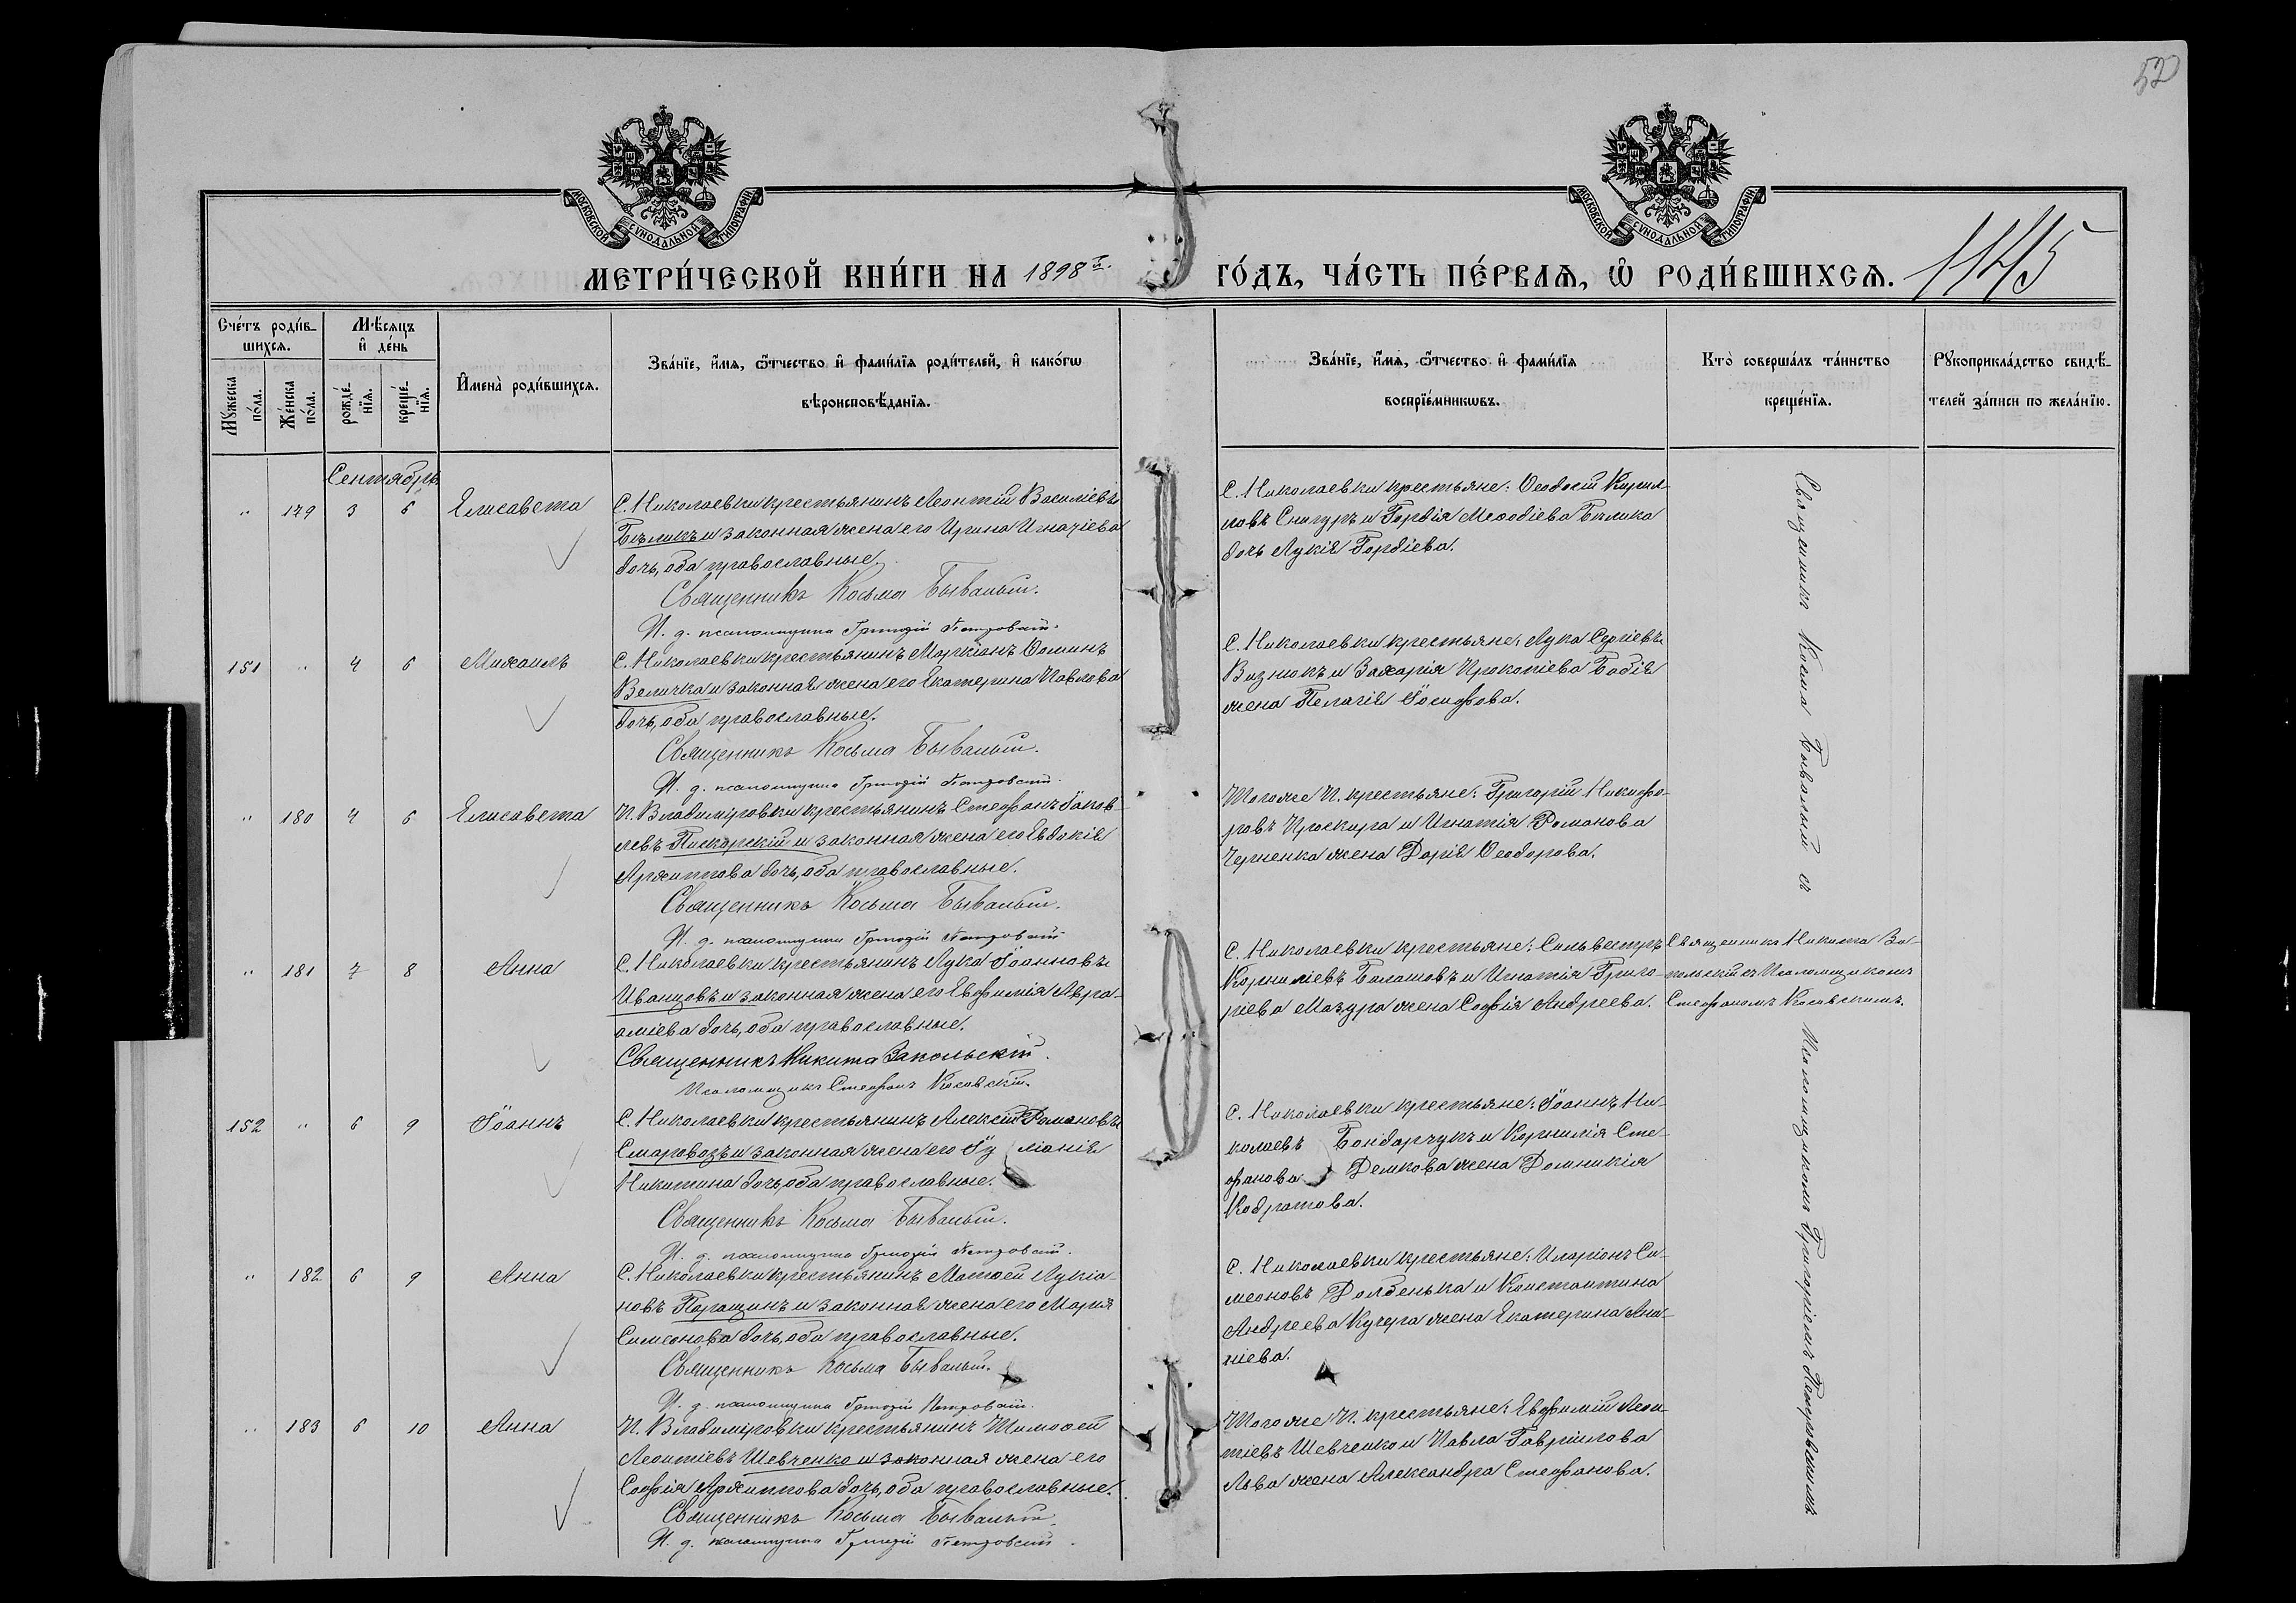 52
МОСКОВСКОЙ СѴНОДАЛЬНОЙ ТИПОГРАФІИ
МОСКОВСКОЙ СѴНОДАЛЬНОЙ ТИПОГРАФІИ
МЕТРИ́ЧЕСКОЙ КНИ́ГИ НА 1898 й.
ГО́ДЪ, ЧА́СТЬ ПЕ́РВАѦ, Ѽ РОДИ́ВШИХСѦ.
1145
Сче́тъ роди́в-
шихсѧ.
Мѣ́сѧцъ
и҆ де́нь
Мꙋ́жеска
по́ла.
Же́нска
по́ла.
рожде́-
нїѧ.
креще́-
нїѧ.
И҆мена̀ роди́вшихсѧ.
Зва́нїе, и҆́мѧ, ѻ҆́тчество и҆ фами́лїѧ роди́телей, и҆ како́гѡ
вѣроисповѣ́данїѧ.
Зва́нїе, и҆́мѧ, ѻ҆́тчество и҆ фами́лїѧ
воспрїе́мникѡвъ.
Кто̀ соверша́лъ та́инство
креще́нїѧ.
Рꙋкоприкла́дство свидѣ́-
телей за́писи по жела́нїю.
Сентябрь
" 179 3 6 Елисавета
С. Николаевки крестьянинъ Леонтій Василіевъ
Бѣликъ и законная жена его Ирина Игнатіева
дочь, оба православные.
Священникъ Косьма Бывалый.
И. д. псаломщика Григорій Петровскій.
С. Николаевки крестьяне: Ѳеодосій Кирил-
ловъ Снигуръ и Гордія Меѳодіева Бѣлика
дочь Лукія Гордіева.
151 " 4 6 Михаилъ
С. Николаевки крестьянинъ Маркіанъ Ѳоминъ
Величка и законная жена его Екатерина Павлова
дочь, оба православные.
Священникъ Косьма Бывалый.
И. д. псаломщика Григорій Петровскій.
С. Николаевки крестьяне: Лука Сергіевъ
Вознюкъ и Захарія Прокопіева Бабія
жена Пелагія Іосифова.
" 180 4 6 Елисавета
П. Владиміровки крестьянинъ Стефанъ Іаков-
левъ Пискорскій и законная жена его Евдокія
Архиппова дочь, оба православные.
Священникъ Косьма Бывалый.
И. д. псаломщика Григорій Петровскій
Того же П. крестьяне: Григорій Никифо-
ровъ Проскура и Игнатія Романова
Черненка жена Дарія Ѳеодорова.
" 181 7 8 Анна
С. Николаевки крестьянинъ Лука Іоанновъ
Иванцовъ и законная жена его Евфимія Авра-
аміева дочь, оба православные.
Священникъ Никита Закольскій.
Псаломщикъ Стефанъ Косовскій.
С. Николаевки крестьяне: Сильвестръ
Корниліевъ Балановъ и Игнатія Григо-
ріева Мазура жена Софія Андреева.
Священникъ Никита За-
польскій съ Псаломщикомъ
Стефаномъ Косовскимъ.
152 " 6 9 Іоаннъ
С. Николаевки крестьянинъ Алексій Романовъ
Смаровозъ и законная жена его Іу ліанія
Никитина дочь, оба православные.
Священникъ Косьма Бывалый.
И. д. псаломщика Григорій Петровскій.
С. Николаевки крестьяне: Іоаннъ Ни-
колаевъ Бондарчукъ и Корнилія Сте-
фанова Демкова жена Домникія
Кодратова.
" 182 6 9 Анна
С. Николаевки крестьянинъ Матѳей Лукіа-
новъ Паращинъ и законная жена его Марія
Самсонова дочь, оба православные.
Священникъ Косьма Бывалый.
И. д. псаломщика Григорій Петровскій.
С. Николаевки крестьяне: Иларіонъ Си-
меоновъ Долбенька и Константина
Андреева Кучера жена Екатерина Ана-
ніева.
" 183 6 10 Анна
П. Владиміровки крестьянинъ Тимоѳей
Леонтіевъ Шевченко и законная жена его
Софія Архиппова дочь, оба православные.
Священникъ Косьма Бывалый.
И. д. псаломщика Григорій Петровскій.
Того же П. крестьяне: Евфимій Леон-
тіевъ Шевченко и Павла Гавріилова
Льва жена Александра Стефанова.
Священникъ Косьма Бывалый съ
Псаломщикомъ Григоріемъ Петровскимъ